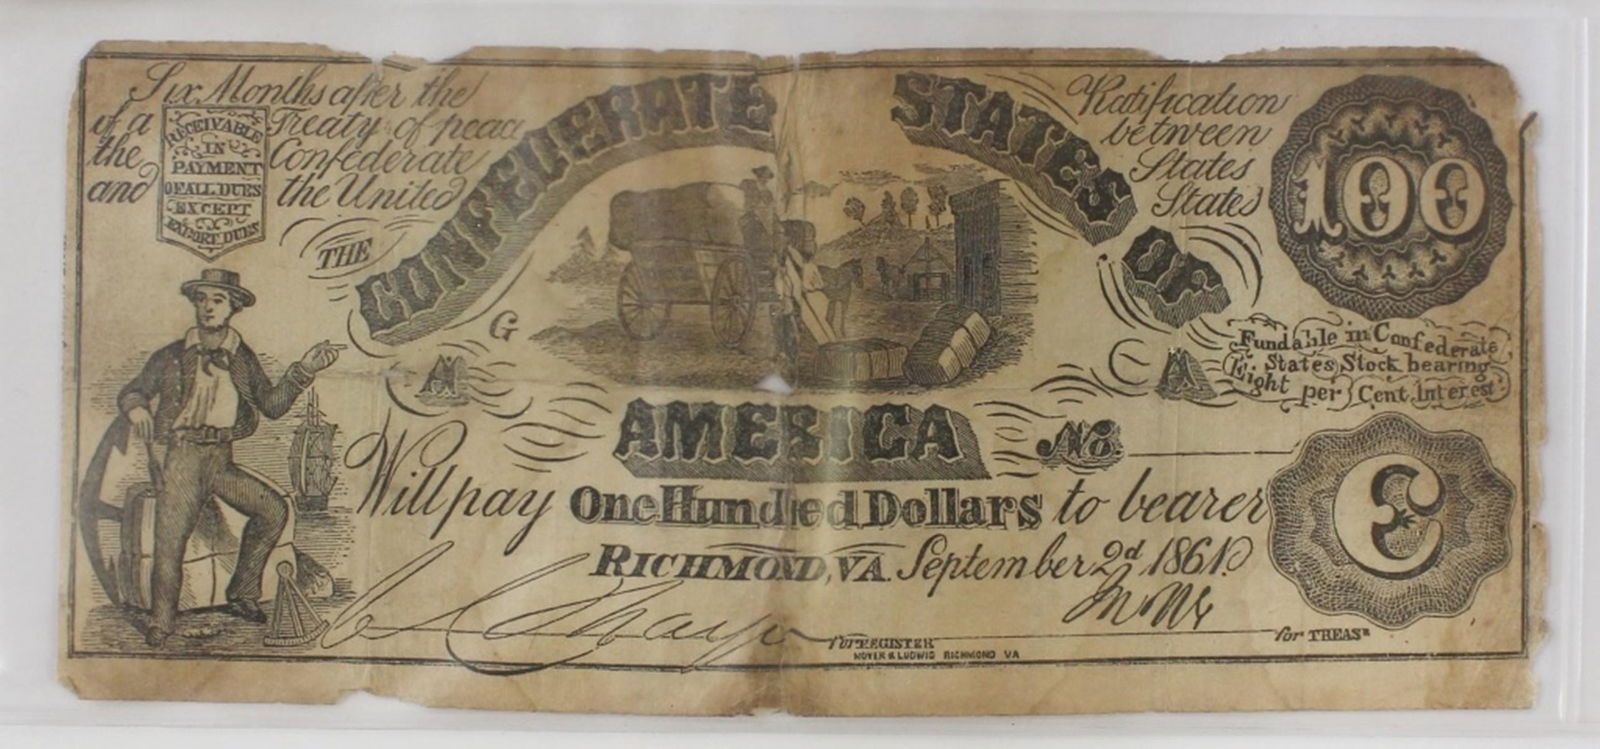 Six Months after the
Ratification
of a Treaty of peace
between
the Confederate
States
and the United
States
RECEIVABLE
IN
PAYMENT
OF ALL DUES
EXCEPT
EXPORT DUES
THE
CONFEDERATE STATES OF
AMERICA
100
G
A
A
Fundable in Confederate
States Stock bearing
Eight per Cent Interest
No.
Will pay One Hundred Dollars to bearer
C
RICHMOND, VA. September 2d 1861.
for REGISTER
for TREASR
HOYER & LUDWIG RICHMOND VA